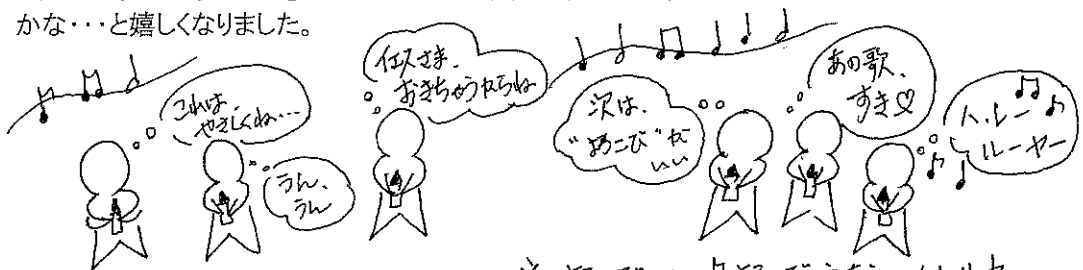 かな・・・と嬉しくなりました。
これは、
やさしくね…
うん、
うん
イエスさま、
おきちゃうからね
次は、
“よろこび”が
いい
あの歌、
すき♡
ハレー
ルーヤー